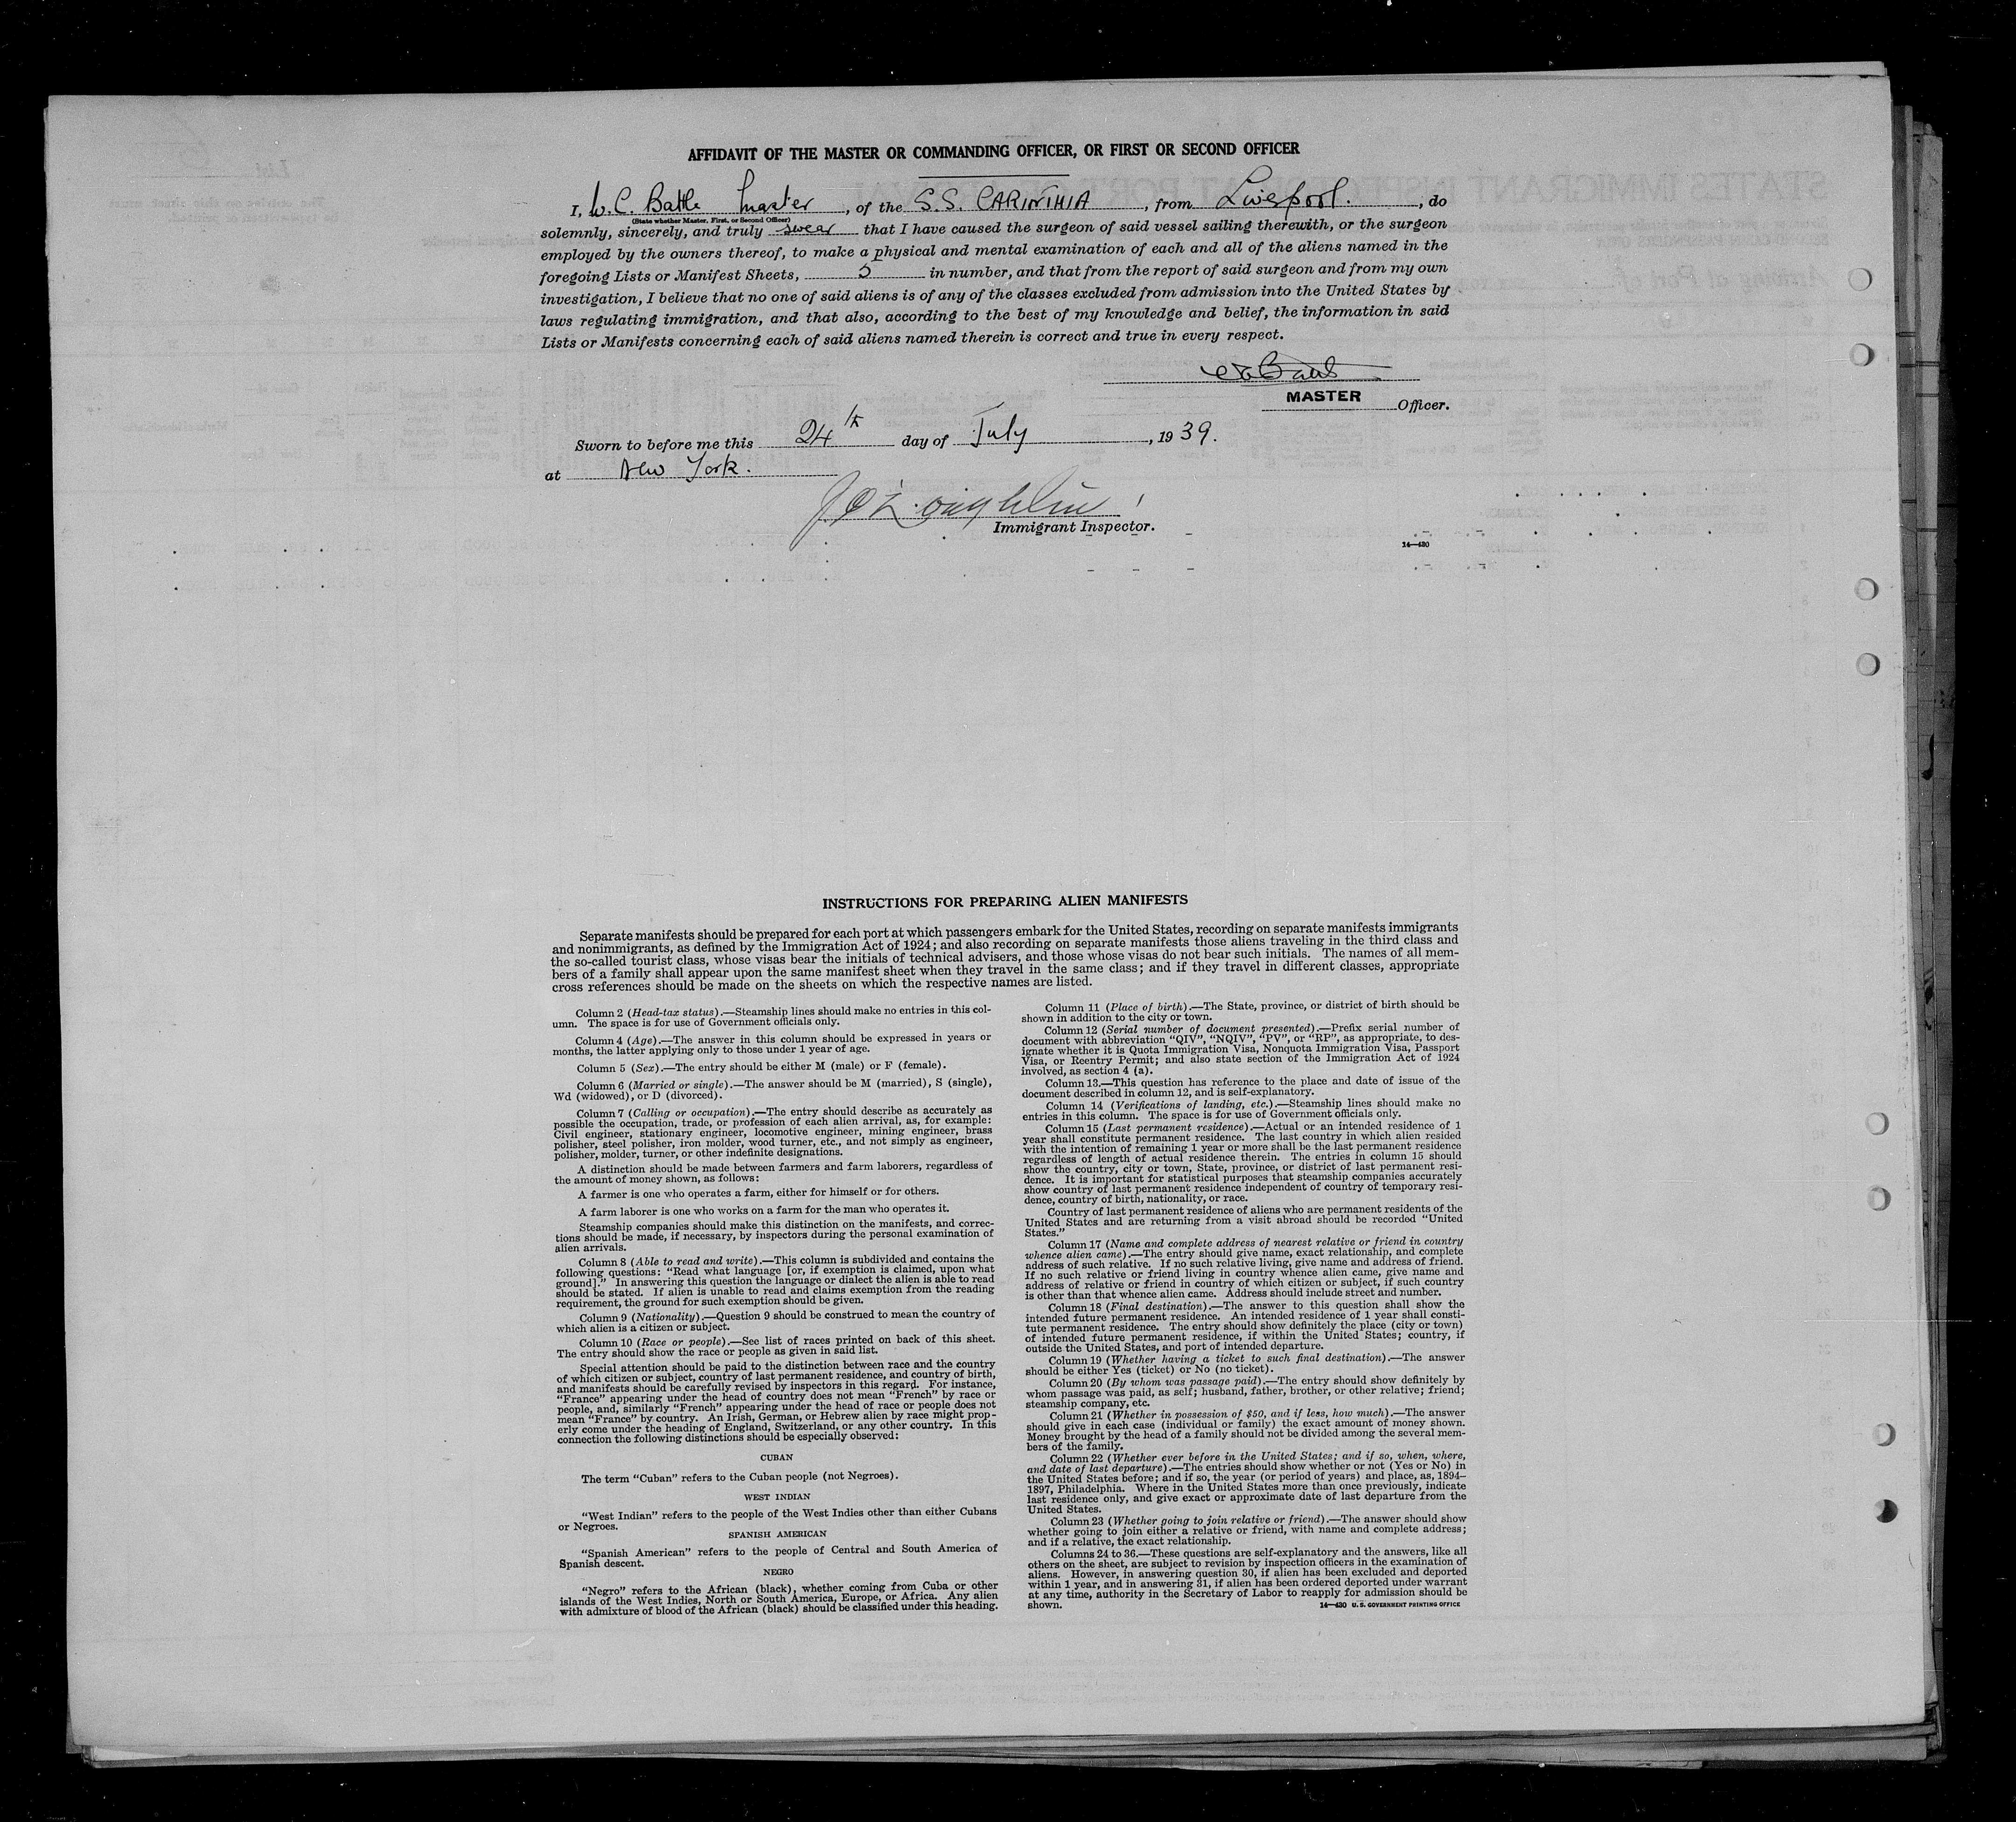 AFFIDAVIT OF THE MASTER OR COMMANDING OFFICER, OR FIRST OR SECOND OFFICER
I, W.C. Battle Master, of the S.S. CARINTHIA, from Liverpool., do
(State whether Master, First, or Second Officer)
solemnly, sincerely, and truly swear that I have caused the surgeon of said vessel sailing therewith, or the surgeon
employed by the owners thereof, to make a physical and mental examination of each and all of the aliens named in the
foregoing Lists or Manifest Sheets, 5 in number, and that from the report of said surgeon and from my own
investigation, I believe that no one of said aliens is of any of the classes excluded from admission into the United States by
laws regulating immigration, and that also, according to the best of my knowledge and belief, the information in said
Lists or Manifests concerning each of said aliens named therein is correct and true in every respect.
MASTER Officer.
Sworn to before me this 24th day of July, 1939.
at New York.
J O'Loughlin
Immigrant Inspector.
14—430
INSTRUCTIONS FOR PREPARING ALIEN MANIFESTS
Separate manifests should be prepared for each port at which passengers embark for the United States, recording on separate manifests immigrants
and nonimmigrants, as defined by the Immigration Act of 1924; and also recording on separate manifests those aliens traveling in the third class and
the so-called tourist class, whose visas bear the initials of technical advisers, and those whose visas do not bear such initials. The names of all mem-
bers of a family shall appear upon the same manifest sheet when they travel in the same class; and if they travel in different classes, appropriate
cross references should be made on the sheets on which the respective names are listed.
Column 2 (Head-tax status).—Steamship lines should make no entries in this col-
umn. The space is for use of Government officials only.
Column 4 (Age).—The answer in this column should be expressed in years or
months, the latter applying only to those under 1 year of age.
Column 5 (Sex).—The entry should be either M (male) or F (female).
Column 6 (Married or single).—The answer should be M (married), S (single),
Wd (widowed), or D (divorced).
Column 7 (Calling or occupation).—The entry should describe as accurately as
possible the occupation, trade, or profession of each alien arrival, as, for example:
Civil engineer, stationary engineer, locomotive engineer, mining engineer, brass
polisher, steel polisher, iron molder, wood turner, etc., and not simply as engineer,
polisher, molder, turner, or other indefinite designations.
A distinction should be made between farmers and farm laborers, regardless of
the amount of money shown, as follows:
A farmer is one who operates a farm, either for himself or for others.
A farm laborer is one who works on a farm for the man who operates it.
Steamship companies should make this distinction on the manifests, and correc-
tions should be made, if necessary, by inspectors during the personal examination of
alien arrivals.
Column 8 (Able to read and write).—This column is subdivided and contains the
following questions: “Read what language [or, if exemption is claimed, upon what
ground].” In answering this question the language or dialect the alien is able to read
should be stated. If alien is unable to read and claims exemption from the reading
requirement, the ground for such exemption should be given.
Column 9 (Nationality).—Question 9 should be construed to mean the country of
which alien is a citizen or subject.
Column 10 (Race or people).—See list of races printed on back of this sheet.
The entry should show the race or people as given in said list.
Special attention should be paid to the distinction between race and the country
of which citizen or subject, country of last permanent residence, and country of birth,
and manifests should be carefully revised by inspectors in this regard. For instance,
“France” appearing under the head of country does not mean “French” by race or
people, and, similarly “French” appearing under the head of race or people does not
mean “France” by country. An Irish, German, or Hebrew alien by race might prop-
erly come under the heading of England, Switzerland, or any other country. In this
connection the following distinctions should be especially observed:
CUBAN
The term “Cuban” refers to the Cuban people (not Negroes).
WEST INDIAN
“West Indian” refers to the people of the West Indies other than either Cubans
or Negroes.
SPANISH AMERICAN
“Spanish American” refers to the people of Central and South America of
Spanish descent.
NEGRO
“Negro” refers to the African (black), whether coming from Cuba or other
islands of the West Indies, North or South America, Europe, or Africa. Any alien
with admixture of blood of the African (black) should be classified under this heading.
Column 11 (Place of birth).—The State, province, or district of birth should be
shown in addition to the city or town.
Column 12 (Serial number of document presented).—Prefix serial number of
document with abbreviation “QIV”, “NQIV”, “PV”, or “RP”, as appropriate, to des-
ignate whether it is Quota Immigration Visa, Nonquota Immigration Visa, Passport
Visa, or Reentry Permit; and also state section of the Immigration Act of 1924
involved, as section 4 (a).
Column 13.—This question has reference to the place and date of issue of the
document described in column 12, and is self-explanatory.
Column 14 (Verifications of landing, etc.).—Steamship lines should make no
entries in this column. The space is for use of Government officials only.
Column 15 (Last permanent residence).—Actual or an intended residence of 1
year shall constitute permanent residence. The last country in which alien resided
with the intention of remaining 1 year or more shall be the last permanent residence
regardless of length of actual residence therein. The entries in column 15 should
show the country, city or town, State, province, or district of last permanent resi-
dence. It is important for statistical purposes that steamship companies accurately
show country of last permanent residence independent of country of temporary resi-
dence, country of birth, nationality, or race.
Country of last permanent residence of aliens who are permanent residents of the
United States and are returning from a visit abroad should be recorded “United
States.”
Column 17 (Name and complete address of nearest relative or friend in country
whence alien came).—The entry should give name, exact relationship, and complete
address of such relative. If no such relative living, give name and address of friend.
If no such relative or friend living in country whence alien came, give name and
address of relative or friend in country of which citizen or subject, if such country
is other than that whence alien came. Address should include street and number.
Column 18 (Final destination).—The answer to this question shall show the
intended future permanent residence. An intended residence of 1 year shall consti-
tute permanent residence. The entry should show definitely the place (city or town)
of intended future permanent residence, if within the United States; country, if
outside the United States, and port of intended departure.
Column 19 (Whether having a ticket to such final destination).—The answer
should be either Yes (ticket) or No (no ticket).
Column 20 (By whom was passage paid).—The entry should show definitely by
whom passage was paid, as self; husband, father, brother, or other relative; friend;
steamship company, etc.
Column 21 (Whether in possession of $50, and if less, how much).—The answer
should give in each case (individual or family) the exact amount of money shown.
Money brought by the head of a family should not be divided among the several mem-
bers of the family.
Column 22 (Whether ever before in the United States; and if so, when, where,
and date of last departure).—The entries should show whether or not (Yes or No) in
the United States before; and if so, the year (or period of years) and place, as, 1894–
1897, Philadelphia. Where in the United States more than once previously, indicate
last residence only, and give exact or approximate date of last departure from the
United States.
Column 23 (Whether going to join relative or friend).—The answer should show
whether going to join either a relative or friend, with name and complete address;
and if a relative, the exact relationship.
Columns 24 to 36.—These questions are self-explanatory and the answers, like all
others on the sheet, are subject to revision by inspection officers in the examination of
aliens. However, in answering question 30, if alien has been excluded and deported
within 1 year, and in answering 31, if alien has been ordered deported under warrant
at any time, authority in the Secretary of Labor to reapply for admission should be
shown.
14—430 U. S. GOVERNMENT PRINTING OFFICE